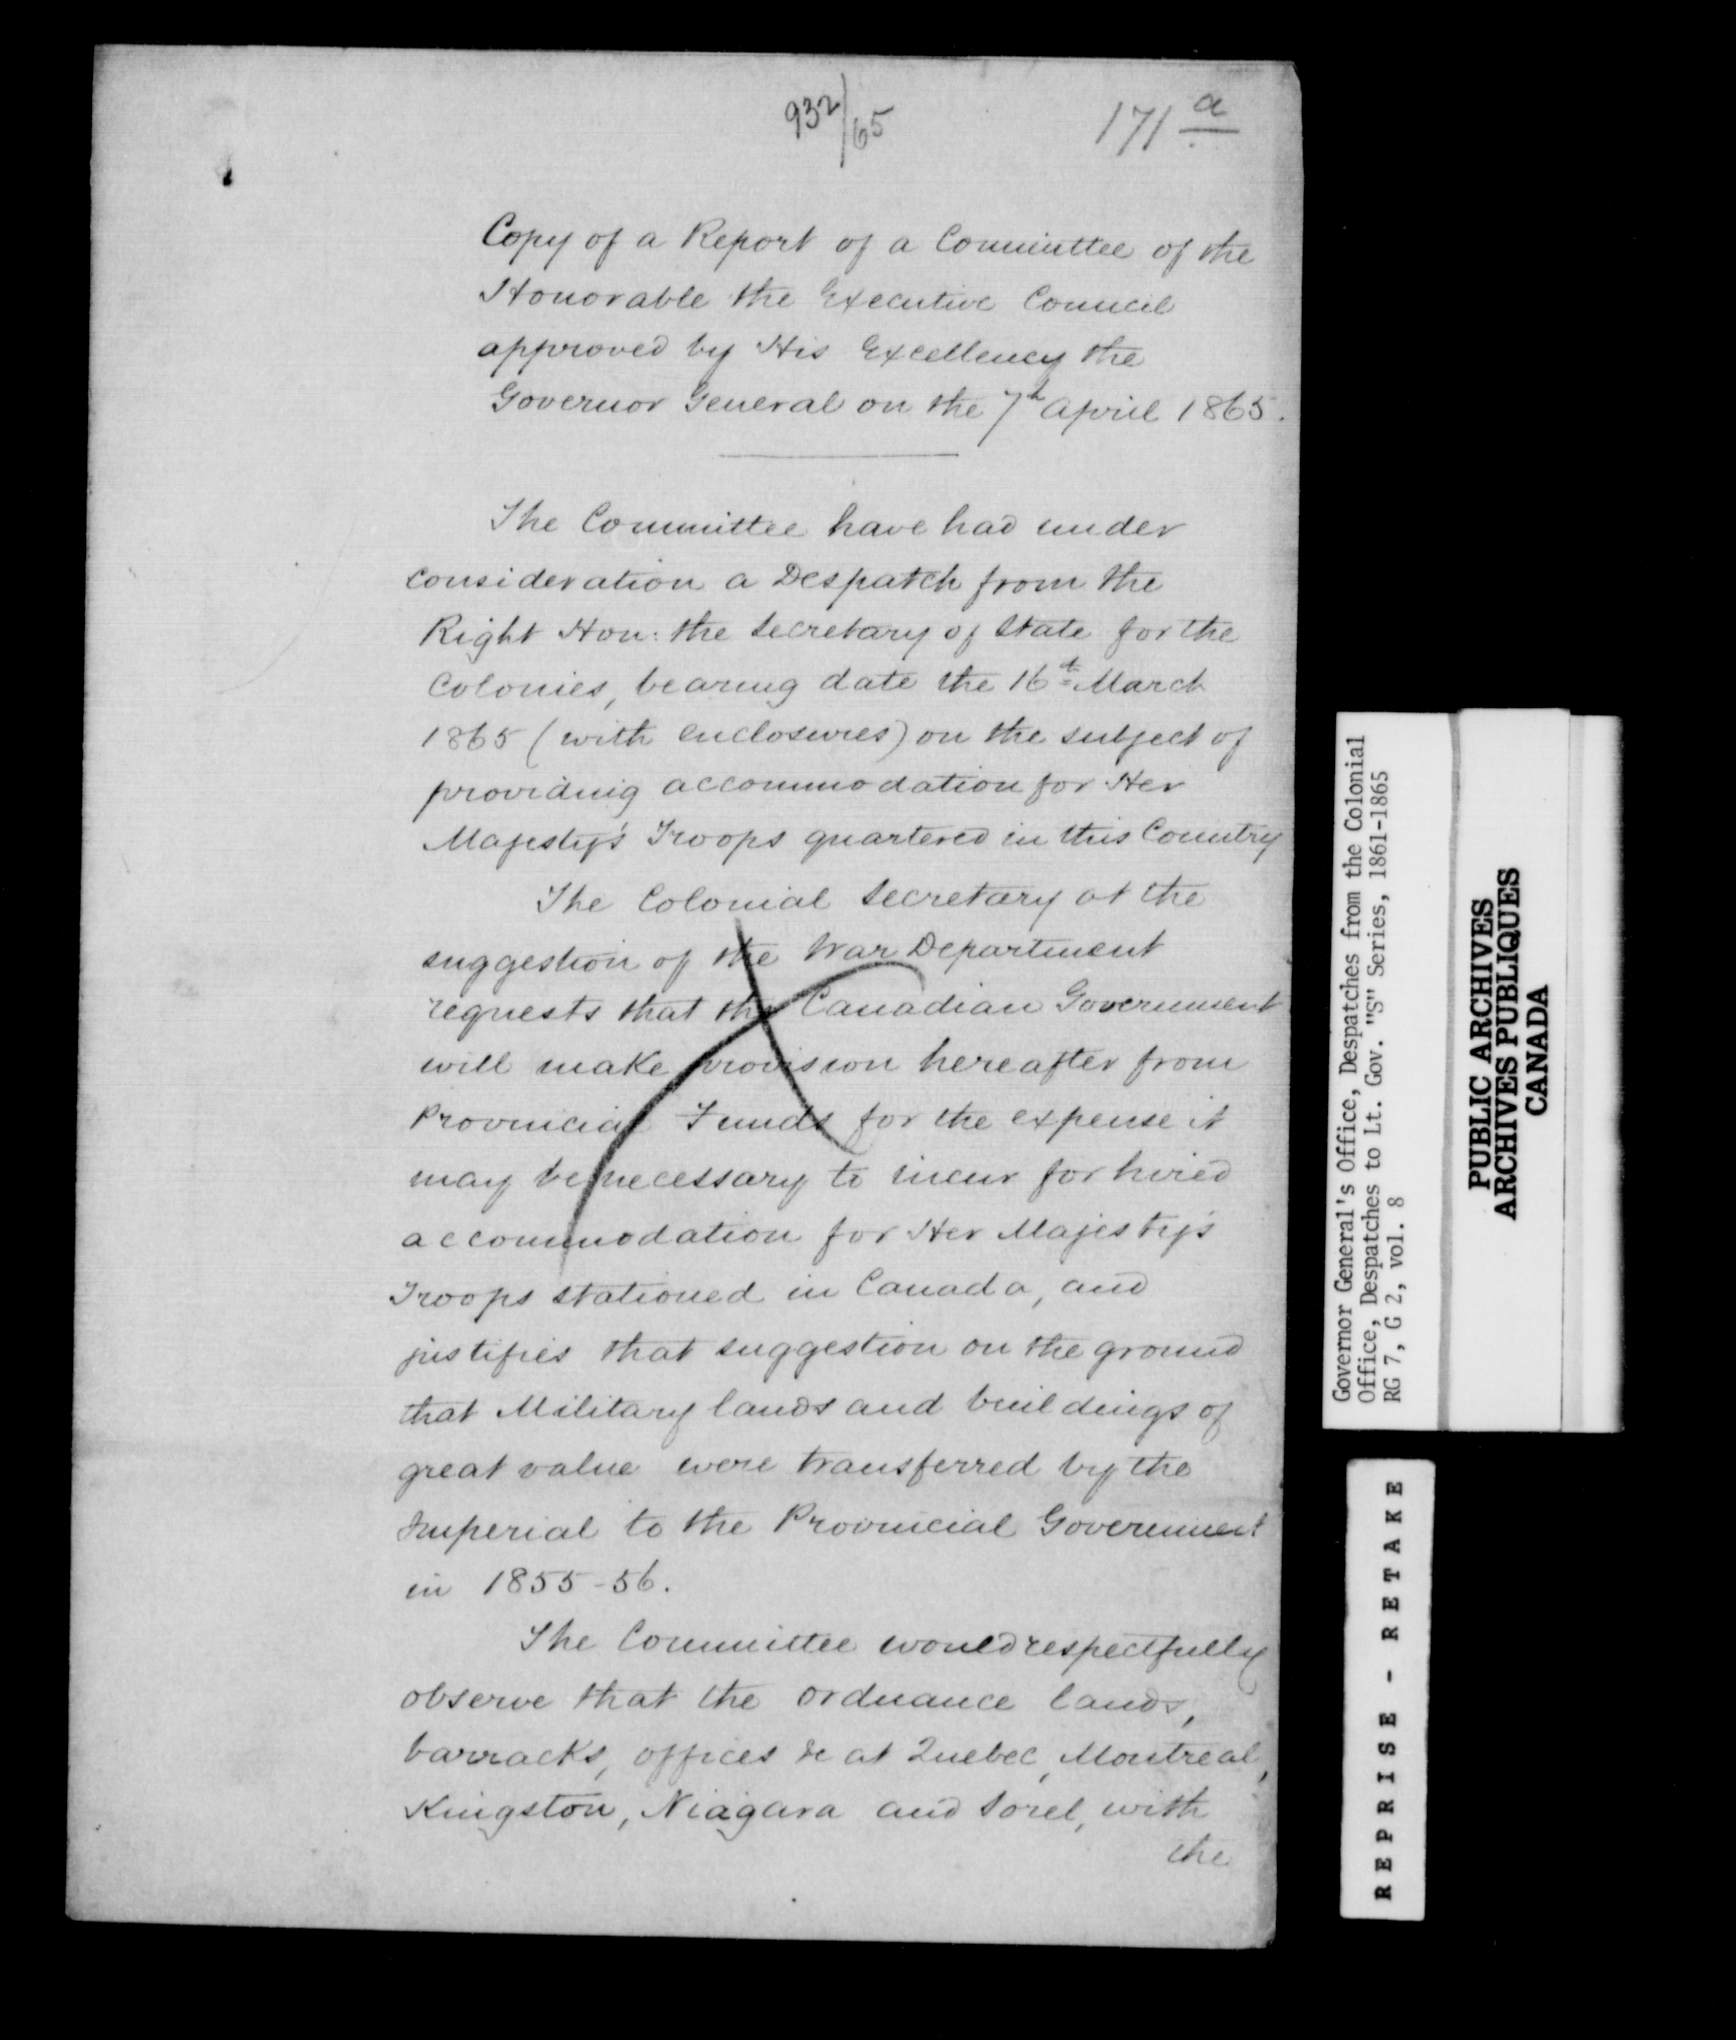 932/65
171 a
Copy of a Report of a Committee of the
Honorable the Executive Council
approved by His Excellency the
Governor General on the 7th April 1865.
The Committee have had under
consideration a Despatch from the
Right Hon: the Secretary of State for the
Colonies, bearing date the 16th March
1865 (with enclosures) on the subject of
providing accommodation for Her
Majesty's Troops quartered in this Country
The Colonial Secretary at the
suggestion of the War Department
requests that the Canadian Government
will make provision hereafter from
Provincial Funds for the expense it
may be necessary to incur for hired
accommodation for Her Majesty's
Troops stationed in Canada, and
justifies that suggestion on the ground
that Military lands and buildings of
great value were transferred by the
Imperial to the Provincial Government
in 1855-56.
The Committee would respectfully
observe that the ordnance lands,
barracks, offices &c at Quebec, Montreal,
Kingston, Niagara and Sorel, with
the
Governor General's Office, Despatches from the Colonial
Office, Despatches to Lt. Gov. "S" Series, 1861-1865
RG 7, G 2, vol. 8
PUBLIC ARCHIVES
ARCHIVES PUBLIQUES
CANADA
REPRISE - RETAKE